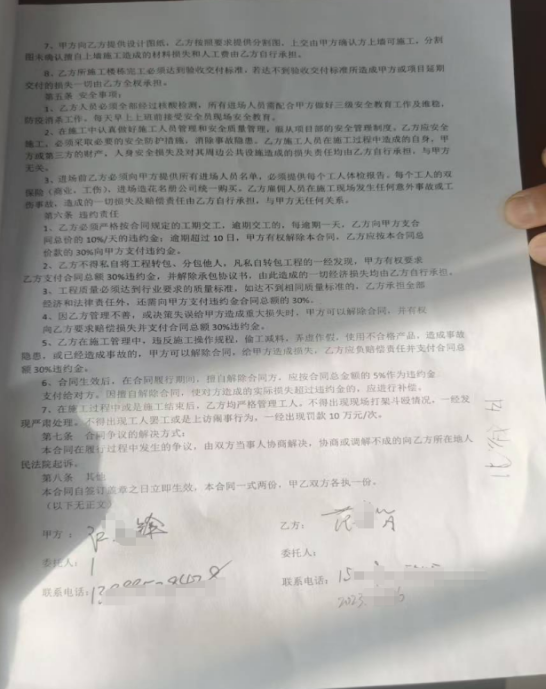 7、甲方向乙方提供设计图纸，乙方按照要求提供分割图，上交由甲方确认方上墙可施工，分割
图未确认擅自上墙施工造成的材料损失和人工费由乙方自行承担。
8、乙方所施工楼栋完工必须达到验收交付标准，若达不到验收交付标准所造成甲方或项目延期
交付的损失一切由乙方全权承担。
第五条 安全事项：
1、乙方人员必须全部经过核酸检测，所有进场人员需配合甲方做好三级安全教育工作及难检，
防疫消杀工作。每天早上上班前接受安全员现场安全教育。
2、在施工中认真做好施工人员管理和安全质量管理，服从项目部的安全管理制度，乙方应安全
施工，必须采取必要的安全防护措施，消除事故隐患，乙方施工人员在施工过程中造成的自身、甲
方或第三方的财产、人身安全损失及对其周边公共设施造成的损失责任均由乙方自行承担，与甲方
无关。
3、进场前乙方必须向甲方提供所有进场人员名单，必须提供每个工人体检报告，每个工人的双
保险（商业、工伤），进场造花名册公司统一购买。乙方雇佣人员在施工现场发生任何意外事故或工
伤事故，造成的一切损失及赔偿责任由乙方自行承担，与甲方无任何关系。
第六条 违约责任
1、乙方必须严格按合同规定的工期交工，逾期交工的，每逾期一天，乙方向甲方支合
同总价的10%/天的违约金；逾期超过 10 日，甲方有权解除本合同，乙方应按本合同总
价款的 30%向甲方支付违约金。
2、乙方不得私自将工程转包、分包他人，凡私自转包工程的一经发现，甲方有权要求
乙方支付合同总额 30%违约金，并解除承包协议书，由此造成的一切经济损失均由乙方自行承担。
3、工程质量必须达到行业要求的质量标准，如达不到相同质量标准的，乙方承担全部
经济和法律责任外，还需向甲方支付违约金合同总额的 30%。
4、因乙方管理不善，或决策失误给甲方造成重大损失时，甲方可以解除合同，并有权
向乙方要求赔偿损失并支付合同总额 30%违约金。
5、乙方在施工管理中，违反施工操作规程，偷工减料，弄虚作假，使用不合格产品，造成事故
隐患，或已经造成事故的，甲方可以解除合同，给甲方造成损失，乙方应负赔偿责任并支付合同总
额 30%违约金。
6、合同生效后，在合同履行期间，擅自解除合同方，应按合同总金额的 5%作为违约金
支付给对方。因擅自解除合同，使对方造成的实际损失超过违约金的，应进行补偿。
7、在施工过程中或是施工结束后，乙方均严格管理工人，不得出现现场打架斗殴情况，一经发
现严肃处理。不得出现工人罢工或是上访闹事行为，一经出现罚款 10 万元/次。
第七条 合同争议的解决方式：
本合同在履行过程中发生的争议，由双方当事人协商解决，协商或调解不成的向乙方所在地人
民法院起诉。
第八条 其他
本合同自签订盖章之日立即生效，本合同一式两份，甲乙双方各执一份。
（以下无正文）
甲方：
乙方：
委托人：
委托人：
联系电话：
联系电话：15
2023